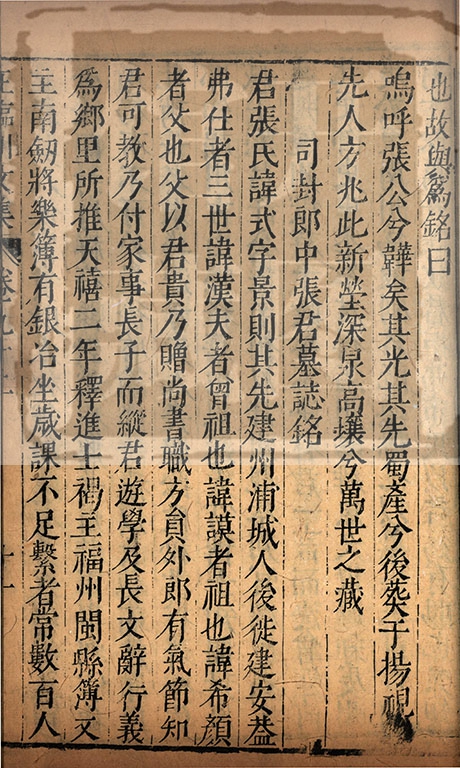 也故與爲銘曰
嗚呼張公兮韡矣其光其先蜀產兮後葬于揚視
先人方兆此新塋深泉高壤兮萬世之藏
司封郎中張君墓誌銘
君張氏諱式字景則其先建州浦城人後徙建安葢
弗仕者三世諱漢夫者曾祖也諱謨者祖也諱希顔
者父也父以君貴乃贈尚書職方員外郎有氣節知
君可教乃付家事長子而縱君遊學及長文辭行義
爲鄉里所推天禧二年釋進士褐主福州閩縣簿又
主南劔將樂簿有銀冶坐歲課不足繫者常數百人
王臨川文集 卷九十